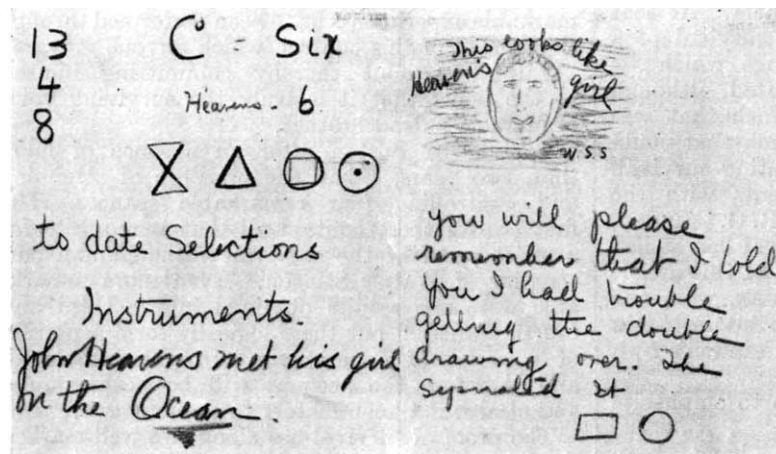 13
4
8
C° Six
Heavens. 6
to date Selections
Instruments.
John Heavens met his girl
on the Ocean.
This looks like
Heavens girl
W.S.S
you will please
remember that I told
you I had trouble
getting the double
drawing over. The
Separated It